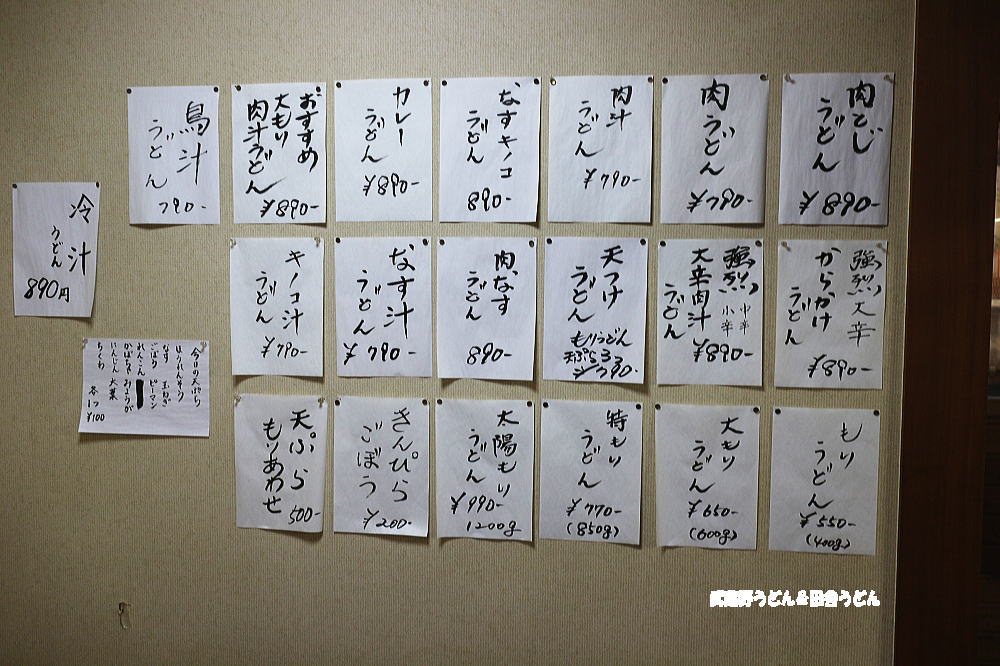 肉とじ
うどん
¥890-
肉
うどん
¥790-
肉汁
うどん
¥790-
なすキノコ
うどん
890-
カレー
うどん
¥890-
おすすめ
大もり
肉汁うどん
¥890-
鳥汁
うどん
790-
冷汁
うどん
890円
強烈
大辛
からかけ
うどん
¥890-
強烈
中辛
小辛
大辛肉汁
うどん
¥890-
天つけ
うどん
もりうどん
天ぷら33
¥790-
肉なす
うどん
890-
なす汁
うどん
¥790-
キノコ汁
うどん
¥790-
今日の天ぷら
ほうれんそう
なす 玉ねぎ
ごぼう ピーマン
れんこん
かぼちゃ みょうが
にんじん 大葉
ちくわ
各1つ
¥100
もり
うどん
¥550-
(400g)
大もり
うどん
¥650-
(600g)
特もり
うどん
¥770-
(850g)
太陽もり
うどん
¥990-
1200g
きんぴら
ごぼう
¥200-
天ぷら
もりあわせ
500-
武蔵野うどん&田舎うどん